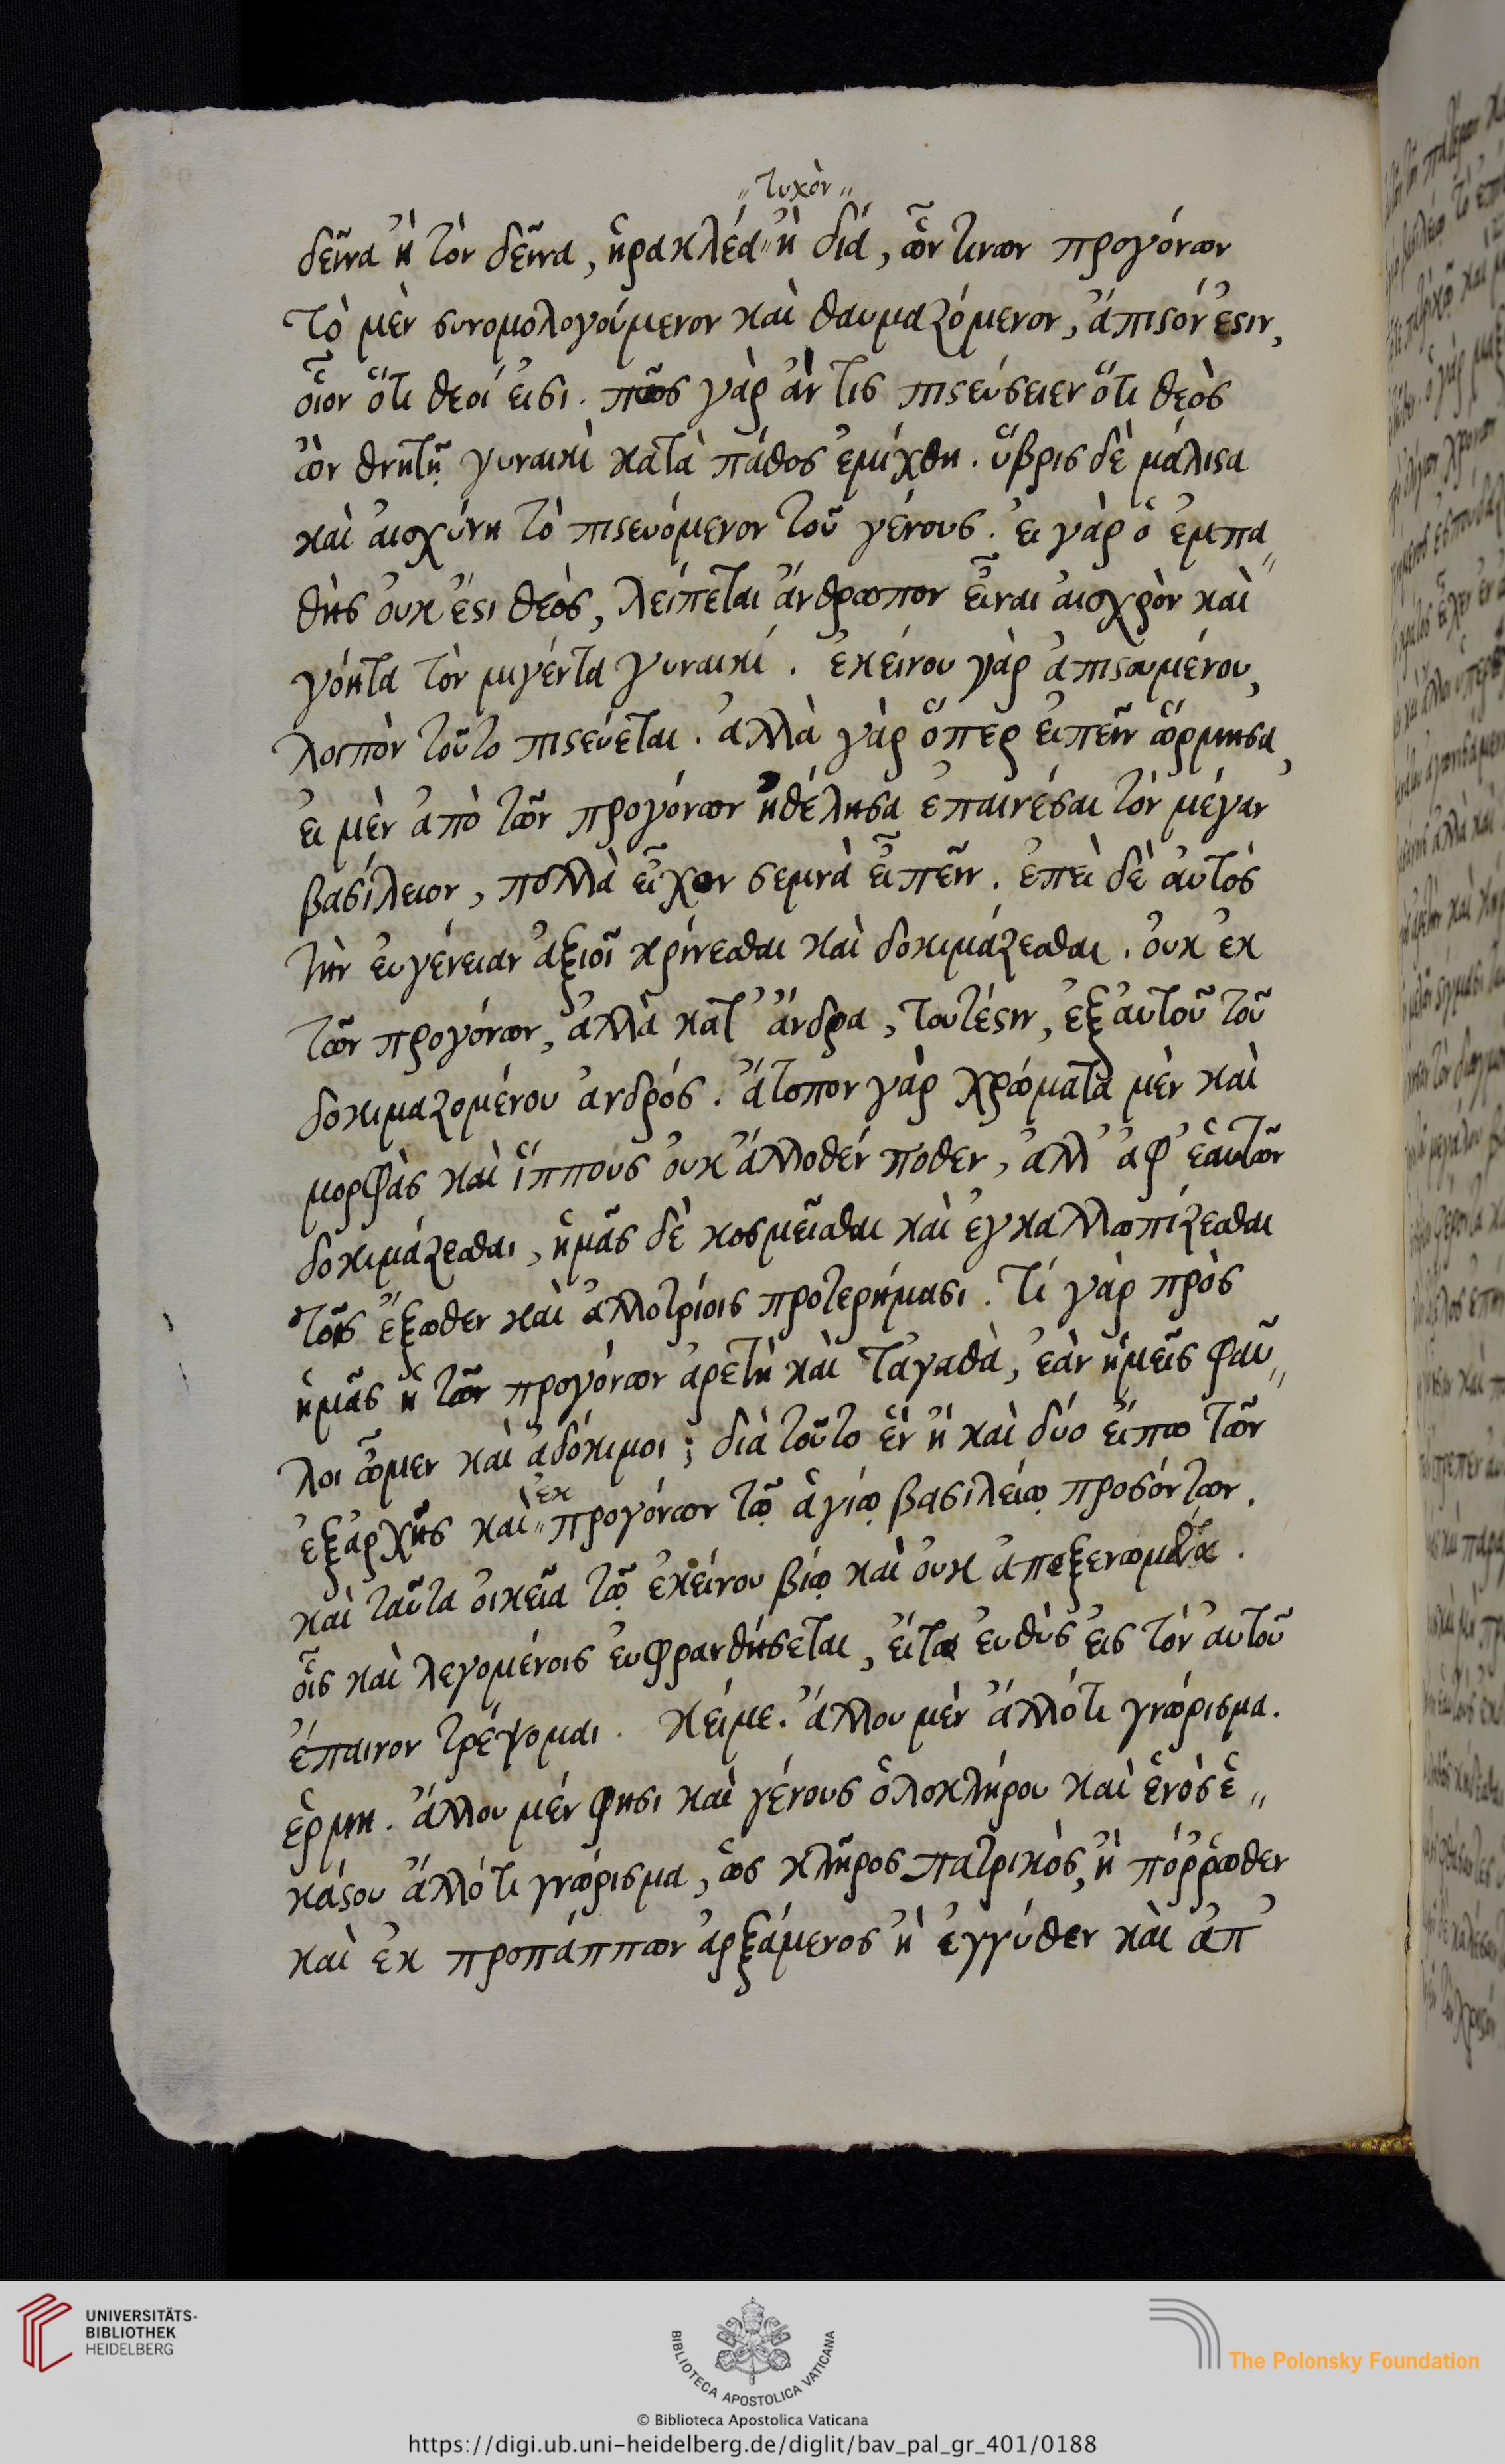 "τυχὸν"
δεῖνα ἢ τὸν δεῖνα, ἡρακλέα "ἢ δία, ὧν τινων προγόνων
τὸ μὲν συνομολογούμενον καὶ θαυμαζόμενον, ἄπιστόν ἐστιν,
οἷον ὅτι θεοί εἰσι. πῶς γὰρ ἄν τις πιστεύσειεν ὅτι θεὸς
ὢν θνητῇ γυναικὶ κατὰ πάθος ἐμίχθη. ὕβρις δὲ μάλιστα
καὶ αἰσχύνη τὸ πιστευόμενον τοῦ γένους. εἰ γὰρ ὁ ἐμπα"
θὴς οὐκ ἔστι θεὸς, λείπεται ἄνθρωπον εἶναι αἰσχρὸν καὶ
γόητα τὸν μιγέντα γυναικί. ἐκείνου γὰρ ἀπιστουμένου,
λοιπὸν τοῦτο πιστεύεται. ἀλλὰ γὰρ ὅπερ εἰπεῖν ὥρμησα,
εἰ μὲν ἀπὸ τῶν προγόνων ἠθέλησα ἐπαινέσαι τὸν μέγαν
βασίλειον, πολλὰ εἶχον σεμνὰ εἰπεῖν. ἐπεὶ δὲ αὐτὸς
τὴν εὐγένειαν ἀξιοῖ κρίνεσθαι καὶ δοκιμάζεσθαι. οὐκ ἐκ
τῶν προγόνων, ἀλλὰ κατ' ἄνδρα, τουτέστιν, ἐξ αὐτοῦ τοῦ
δοκιμαζομένου ἀνδρός. ἄτοπον γὰρ χρώματα μὲν καὶ
μορφὰς καὶ ἵππους οὐκ ἄλλοθέν ποθεν, ἀλλ' ἀφ' ἑαυτῶν
δοκιμάζεσθαι, ἡμᾶς δὲ κοσμεῖσθαι καὶ ἐγκαλλωπίζεσθαι
τοῖς ἔξωθεν καὶ ἀλλοτρίοις προτερήμασι. τί γὰρ πρὸς
ἡμᾶς ἡ τῶν προγόνων ἀρετὴ καὶ τἀγαθὰ, ἐὰν ἡμεῖς φαῦ"
λοι ὦμεν καὶ ἀδόκιμοι; διὰ τοῦτο ἓν ἢ καὶ δύο εἴπω τῶν
ἐξαρχῆς καὶ "ἐκ προγόνων τῷ ἁγίῳ βασιλείῳ προσόντων.
καὶ ταῦτα οἰκεῖα τῷ ἐκείνου βίῳ καὶ οὐκ ἀπεξενωμένα.
οἷς καὶ λεγομένοις εὐφρανθήσεται, εἶτα εὐθὺς εἰς τὸν αὐτοῦ
ἔπαινον τρέψομαι. κείμε. ἄλλου μὲν ἄλλό τι γνώρισμα.
ἑρμη. ἄλλου μέν φησι καὶ γένους ὁλοκλήρου καὶ ἑνὸς ἑ"
κάστου ἄλλό τι γνώρισμα, ὡς κλῆρος πατρικὸς, ἢ πόρῥωθεν
καὶ ἐκ προπάππων ἀρξάμενος ἢ ἐγγύθεν καὶ ἀπ'
UNIVERSITÄTS-
BIBLIOTHEK
HEIDELBERG
BIBLIOTECA APOSTOLICA VATICANA
The Polonsky Foundation
© Biblioteca Apostolica Vaticana
https://digi.ub.uni-heidelberg.de/diglit/bav_pal_gr_401/0188